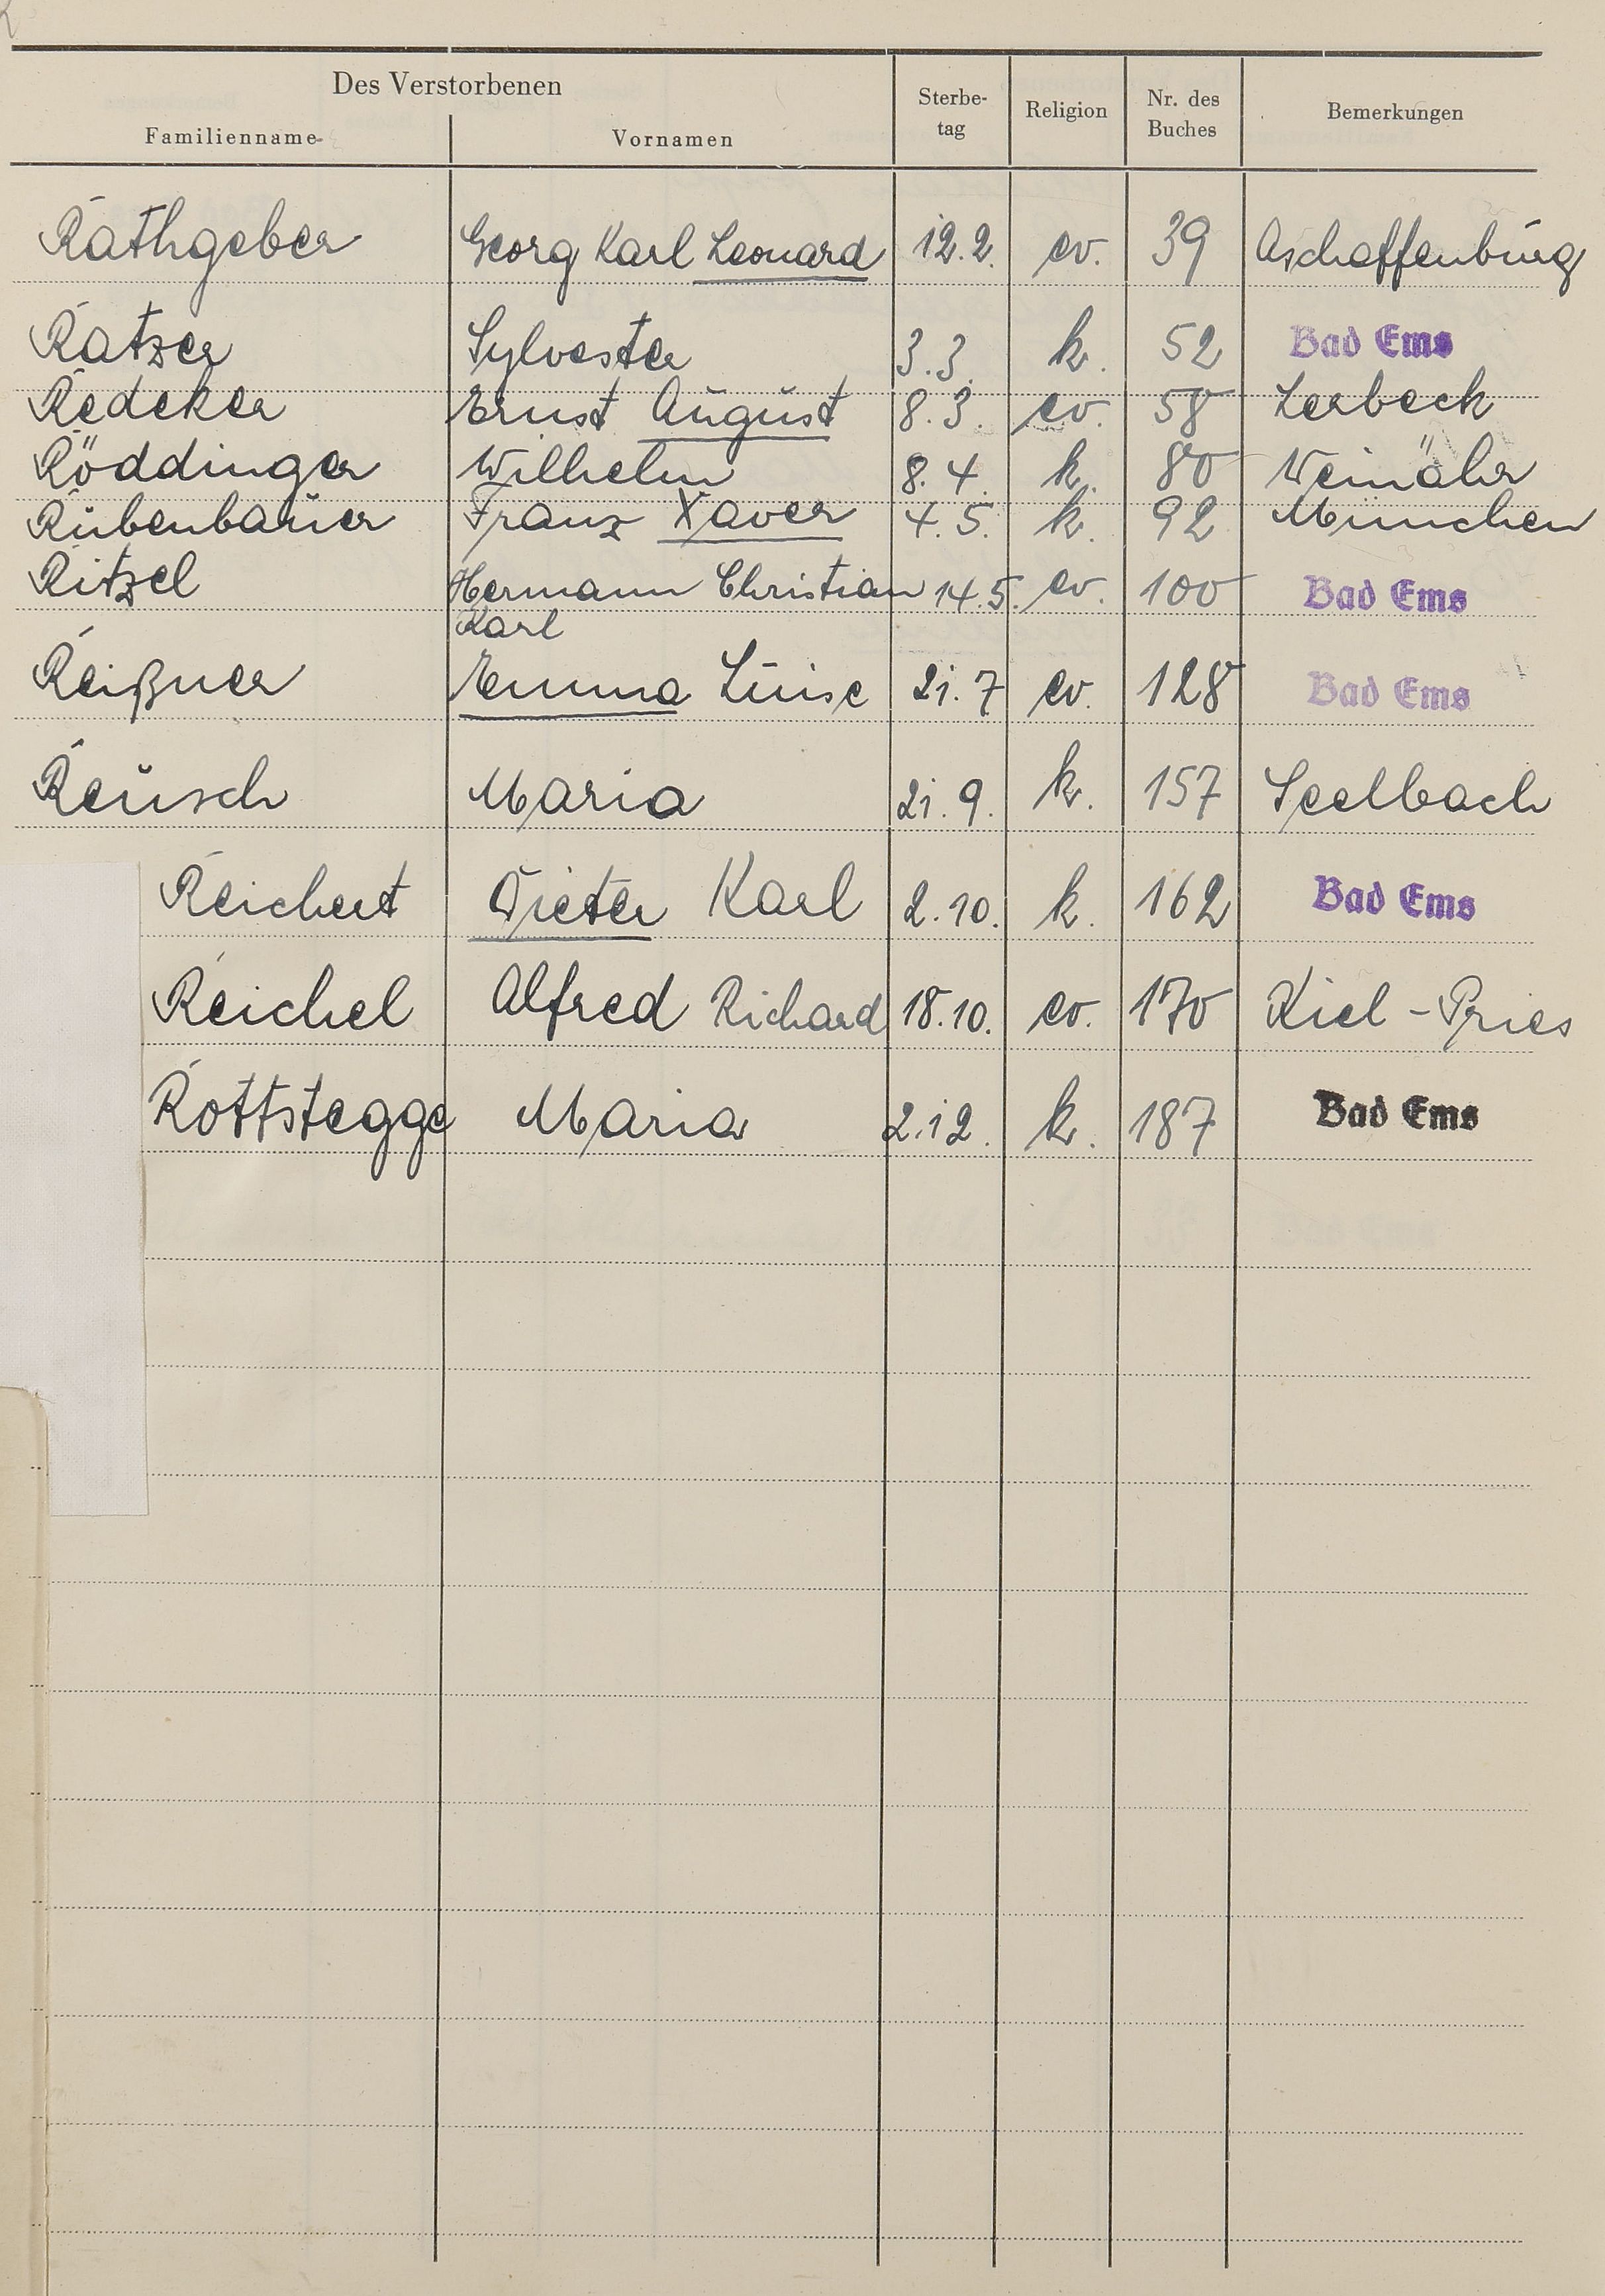 Des Verstorbenen
Familienname Vornamen Sterbe-tag Religion Nr. des Buches Bemerkungen
Rathgeber Georg Karl Leonard 12.2. ev. 39 Aschaffenburg
Ratzer Sylvester 3.3. k. 52 Bad Ems
Redeker Ernst August 8.3. ev. 58 Lerbeck
Röddinger Wilhelm 8.4. k. 80 Weinähr
Rubenbauer Franz Xaver 4.5. k. 92 München
Ritzel Hermann Christian 14.5. ev. 100 Bad Ems
Karl
Reißner Emma Luise 21.7 ev. 128 Bad Ems
Reusch Maria 21.9. k. 157 Seelbach
Reichert Dieter Karl 2.10. k. 162 Bad Ems
Reichel Alfred Richard 18.10. ev. 170 Kiel-Pries
Rottstegge Maria 2.12. k. 187 Bad Ems